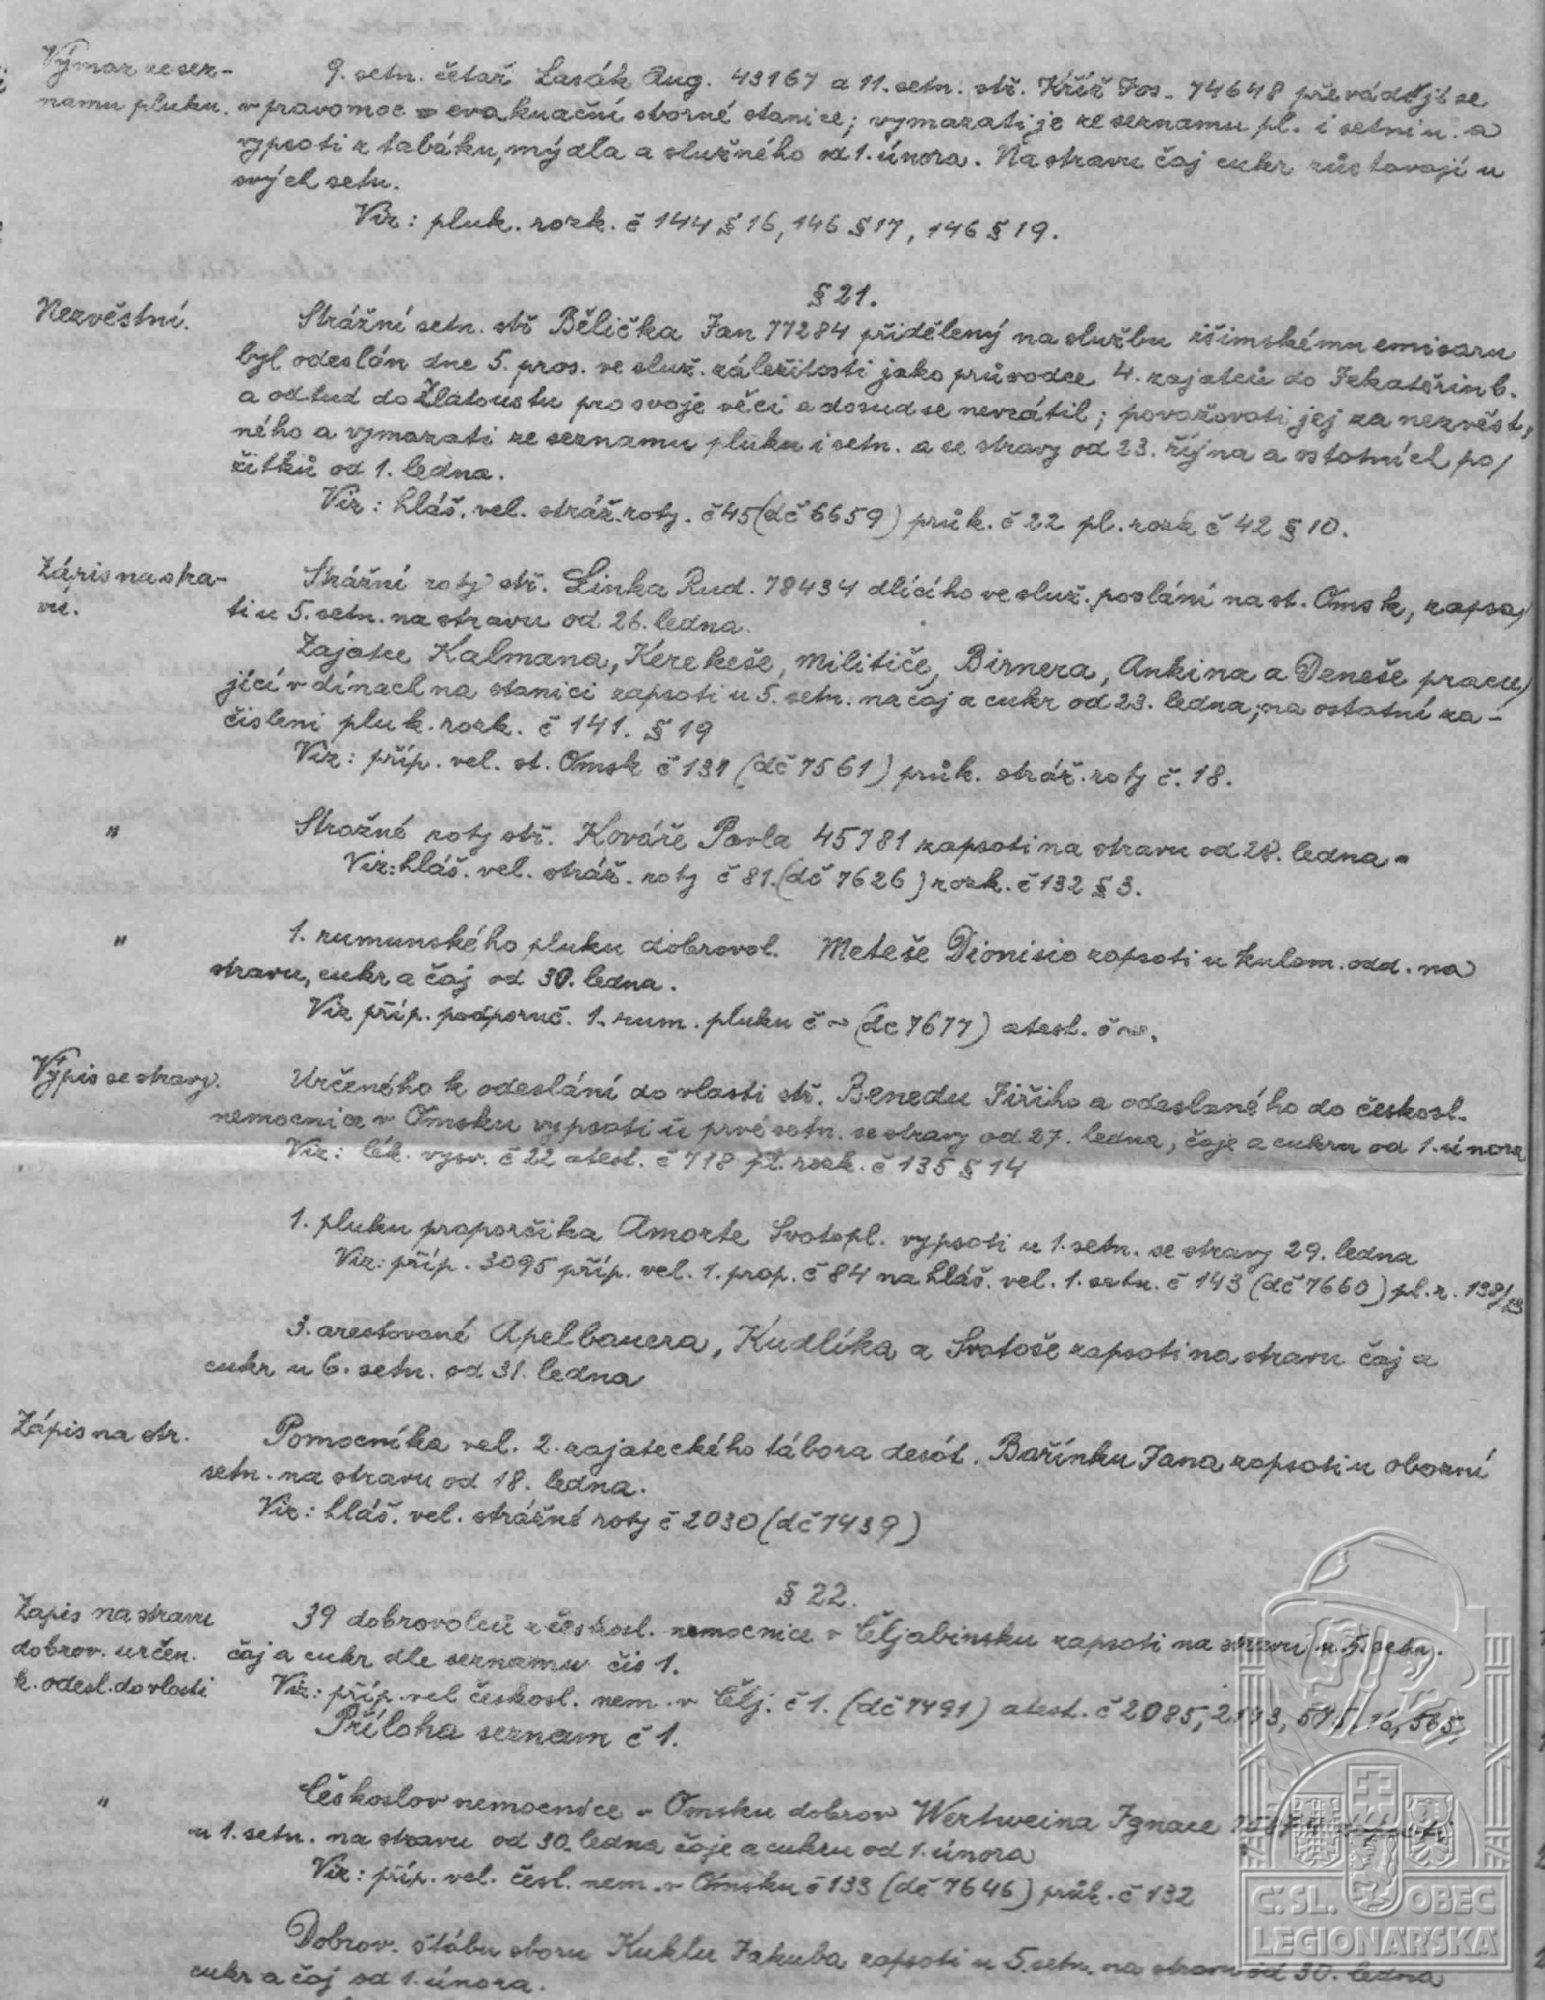 Výmaz ze sez- 9. setn. četař Lasák Aug. 43167 a 11. setn. stř. Kříž Jos. 74648 převádějí se
namu pluku. v pravomoc evakuační sborné stanice; vymazati je ze seznamu pl. i setniu. a
vypsati z tabáku, mýdla a služného od 1. února. Na stravu čaj cukr zůstavají u
svých setn.
Viz: pluk. rozk. č 144 § 16, 146 § 17, 146 § 19.
§ 21.
Nezvěstní. Strážní setn. stř Bělička Jan 77284 přidělený na službu išimskému emisaru
byl odeslán dne 5. pros. ve služ. záležitosti jako průvodce 4. zajatců do Jekatěrinb.
a odtud do Zlatoustu pro svoje věci a dosud se nevrátil; považovati jej za nezvěst,
ného a vymazati ze seznamu pluku i setn. a se stravy od 23. října a ostatních po/
žitků od 1. ledna.
Viz: hláš. vel. stráž. roty. č 45 (dč 6659) průk. č 22 pl. rozk č 42 § 10.
Zápis na stra- Strážní roty stř. Linka Rud. 78434 dlícího ve služ. poslání na st. Omsk, zapsa/
vu. ti u 5. setn. na stravu od 26. ledna.
Zajatce Kalmana, Kerekeše, Militiče, Birnera, Ankina a Deneše pracu/
jící v dínach na stanici zapsati u 5. setn. na čaj a cukr od 23. ledna; na ostatní za-
čisleni pluk. rozk. č 141. § 19
Viz: příp. vel. st. Omsk č 131 (dč 7561) průk. stráž. roty č. 18.
" Stražné roty stř. Kováře Pavla 45781 zapsati na stravu od 28. ledna -
Viz: hláš. vel. stráž. roty č 81. (dč 7626) rozk. č 132 § 3.
" 1. rumunského pluku dobrovol. Meteše Dionisio zapsati u kulom. odd. na
stravu, cukr a čaj od 30. ledna.
Viz příp. podporuč. 1. rum. pluku č ~ (dc 7677) atest. č ~.
Výpis se stravy. Určeného k odeslání do vlasti stř. Benedu Jiřího a odeslaného do českosl.
nemocnice v Omsku vypsati u prvé setn. se stravy od 27. ledna, čaje a cukru od 1. února
Viz: lék. vysv. č 22 atest. č 718 pl. rozk. č 135 § 14
1. pluku praporšika Amorte Svatopl. vypsati u 1. setn. se stravy 29. ledna
Viz: příp. 3095 příp. vel. 1. prap. č 84 na hláš. vel. 1. setn. č 143 (dč 7660) pl. r. 138/
3. arestované Apelbauera, Kudlíka a Svatoše zapsati na stravu čaj a
cukr u 6. setn. od 31. ledna
Zápis na str. Pomocníka vel. 2. zajateckého tábora desát. Bařinku Jana zapsati u obozní
setn. na stravu od 18. ledna.
Viz: hláš. vel. strážné roty č 2030 (dč 7439)
§ 22.
Zapis na stravu 39 dobrovolců z českosl. nemocnice v Čeljabinsku zapsati na stravu u 5. setn.
dobrov. určen. čaj a cukr dle seznamu čis 1.
k. odesl. do vlasti Viz: příp. vel českosl. nem. v Čelj. č 1. (dč 7491) atest. č 2085, 2143,
Příloha seznam č 1.
" Českoslov nemocnice v Omsku dobrov Wertweina Ignace
u 1. setn. na stravu od 30. ledna čaje a cukru od 1. února
Viz: příp. vel. česl. nem. v Omsku č 133 (dč 7646) průk. č 132
Dobrov. štábu sboru Kuklu Jakuba zapsati u 5. setn. na stravu od 30. ledna
cukr a čaj od 1. února.
Č.SL. OBEC
LEGIONÁŘSKÁ